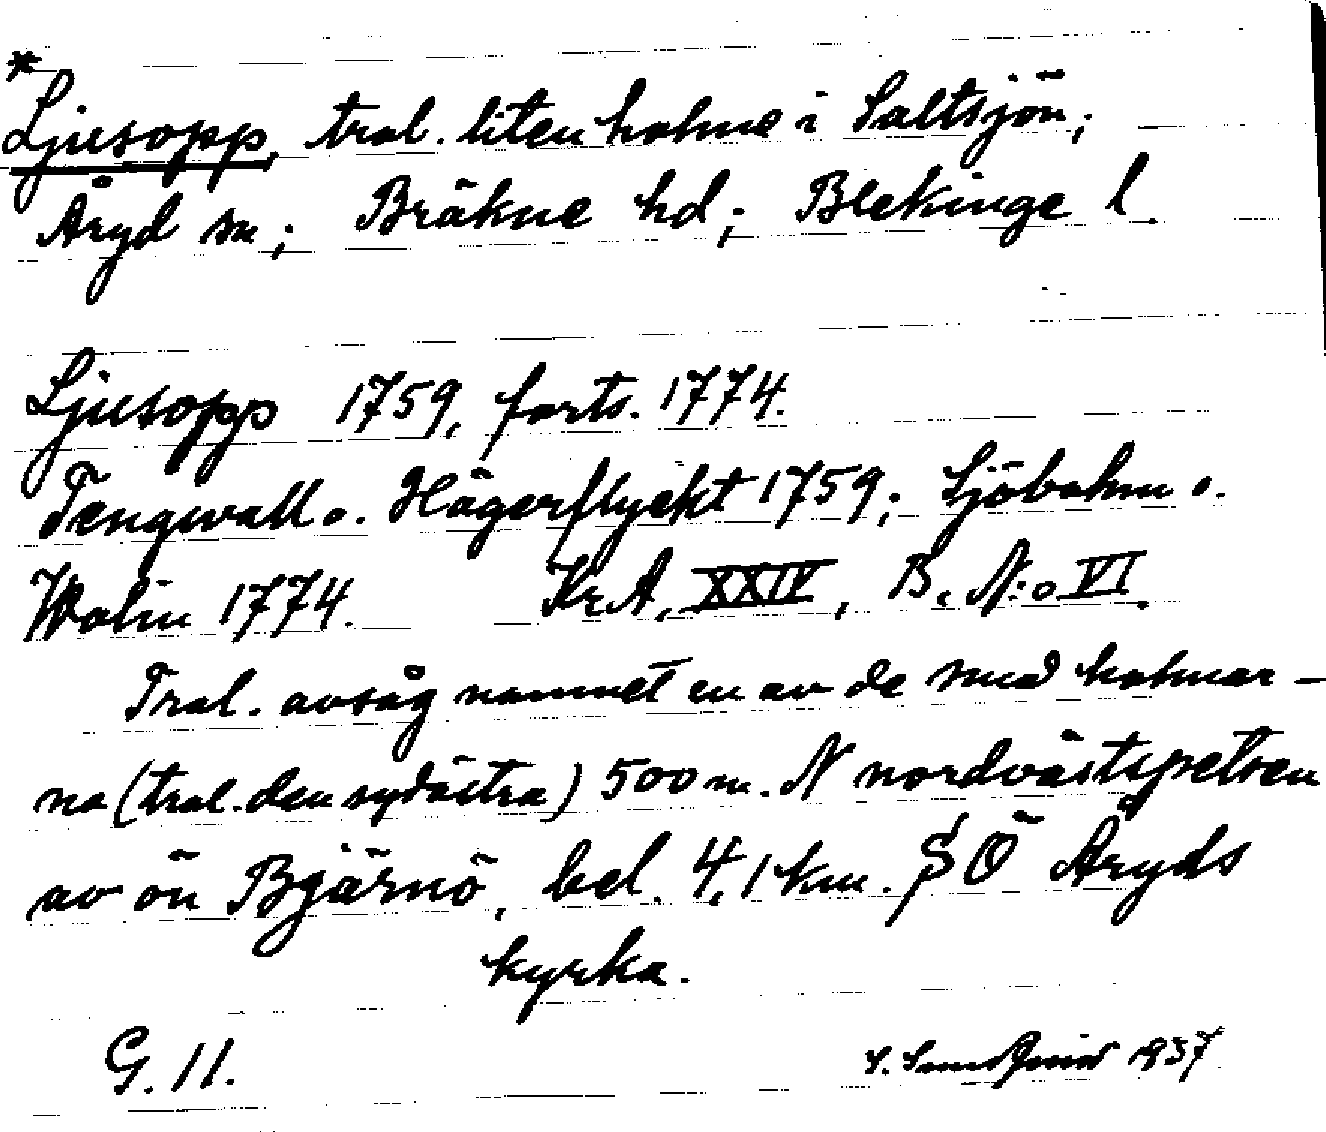 *
Ljusopp, trol. liten holme i Saltsjön;
Åryd sn; Bräkne hd; Blekinge l.
Ljusopp 1759, forts. 1774.
Tengwall o. Hägerflycht 1759; Sjöbohm o.
Wolin 1774. Kr.A. XXIV, B. N:o VI.
Trol. avsåg namnet en av de små holmar-
na (trol. den sydöstra) 500 m. N nordvästspetsen
av ön Bjärnö, bel. 4,1 km. SÖ Åryds
kyrka.
G. 11. 1937